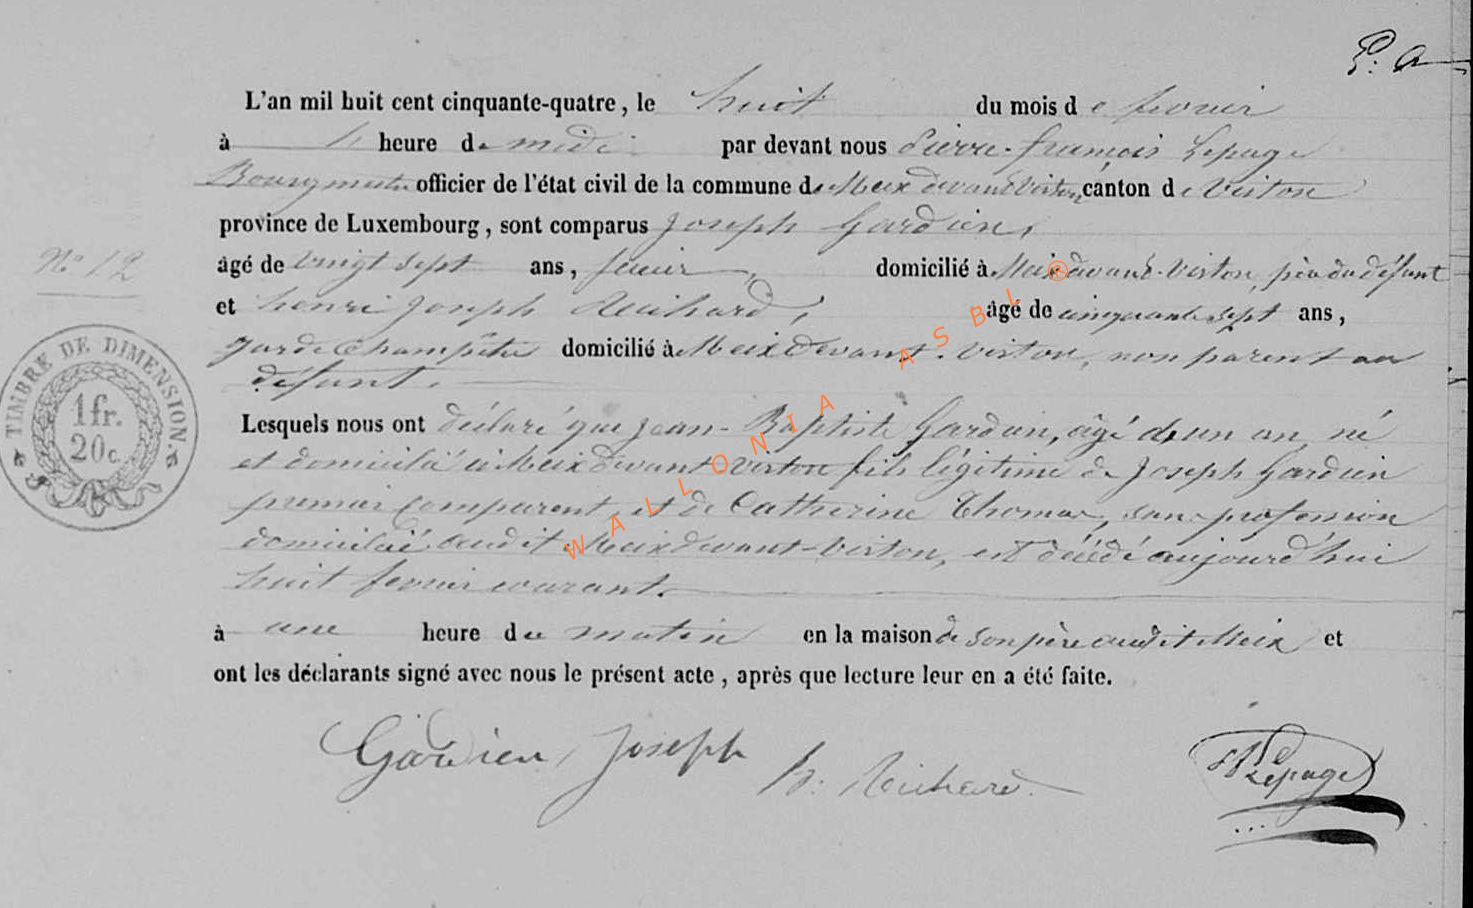 P. A
L'an mil huit cent cinquante-quatre, le huit du mois de fevrier
à heure de midi par devant nous Pierre-françois Lepage
Bourgmestre officier de l'état civil de la commune de Meix devant Virton, canton de Virton
province de Luxembourg, sont comparus Joseph Gardien,
âgé de vingt sept ans, domicilié à Meix devant-Virton, père du défunt
N° 12
et henri Joseph Richard, âgé de cinquante sept ans,
garde champêtre domicilié à Meix devant-Virton, non parent au
défunt.
TIMBRE DE DIMENSION
1 fr.
20 c.
Lesquels nous ont déclaré que Jean-Baptiste Gardien, âgé de un an, né
et domicilié à Meix devant Virton fils légitime de Joseph Gardien
premier comparent, et de Catherine Thomas, sans profession
domiciliée audit Meix devant-Virton, est décédé aujourd'hui
huit fevrier courant.
à une heure du matin en la maison de son père audit Meix et
ont les déclarants signé avec nous le présent acte, après que lecture leur en a été faite.
Gardien Joseph
h. Richard
Lepage
WALLONIA ASBL ®